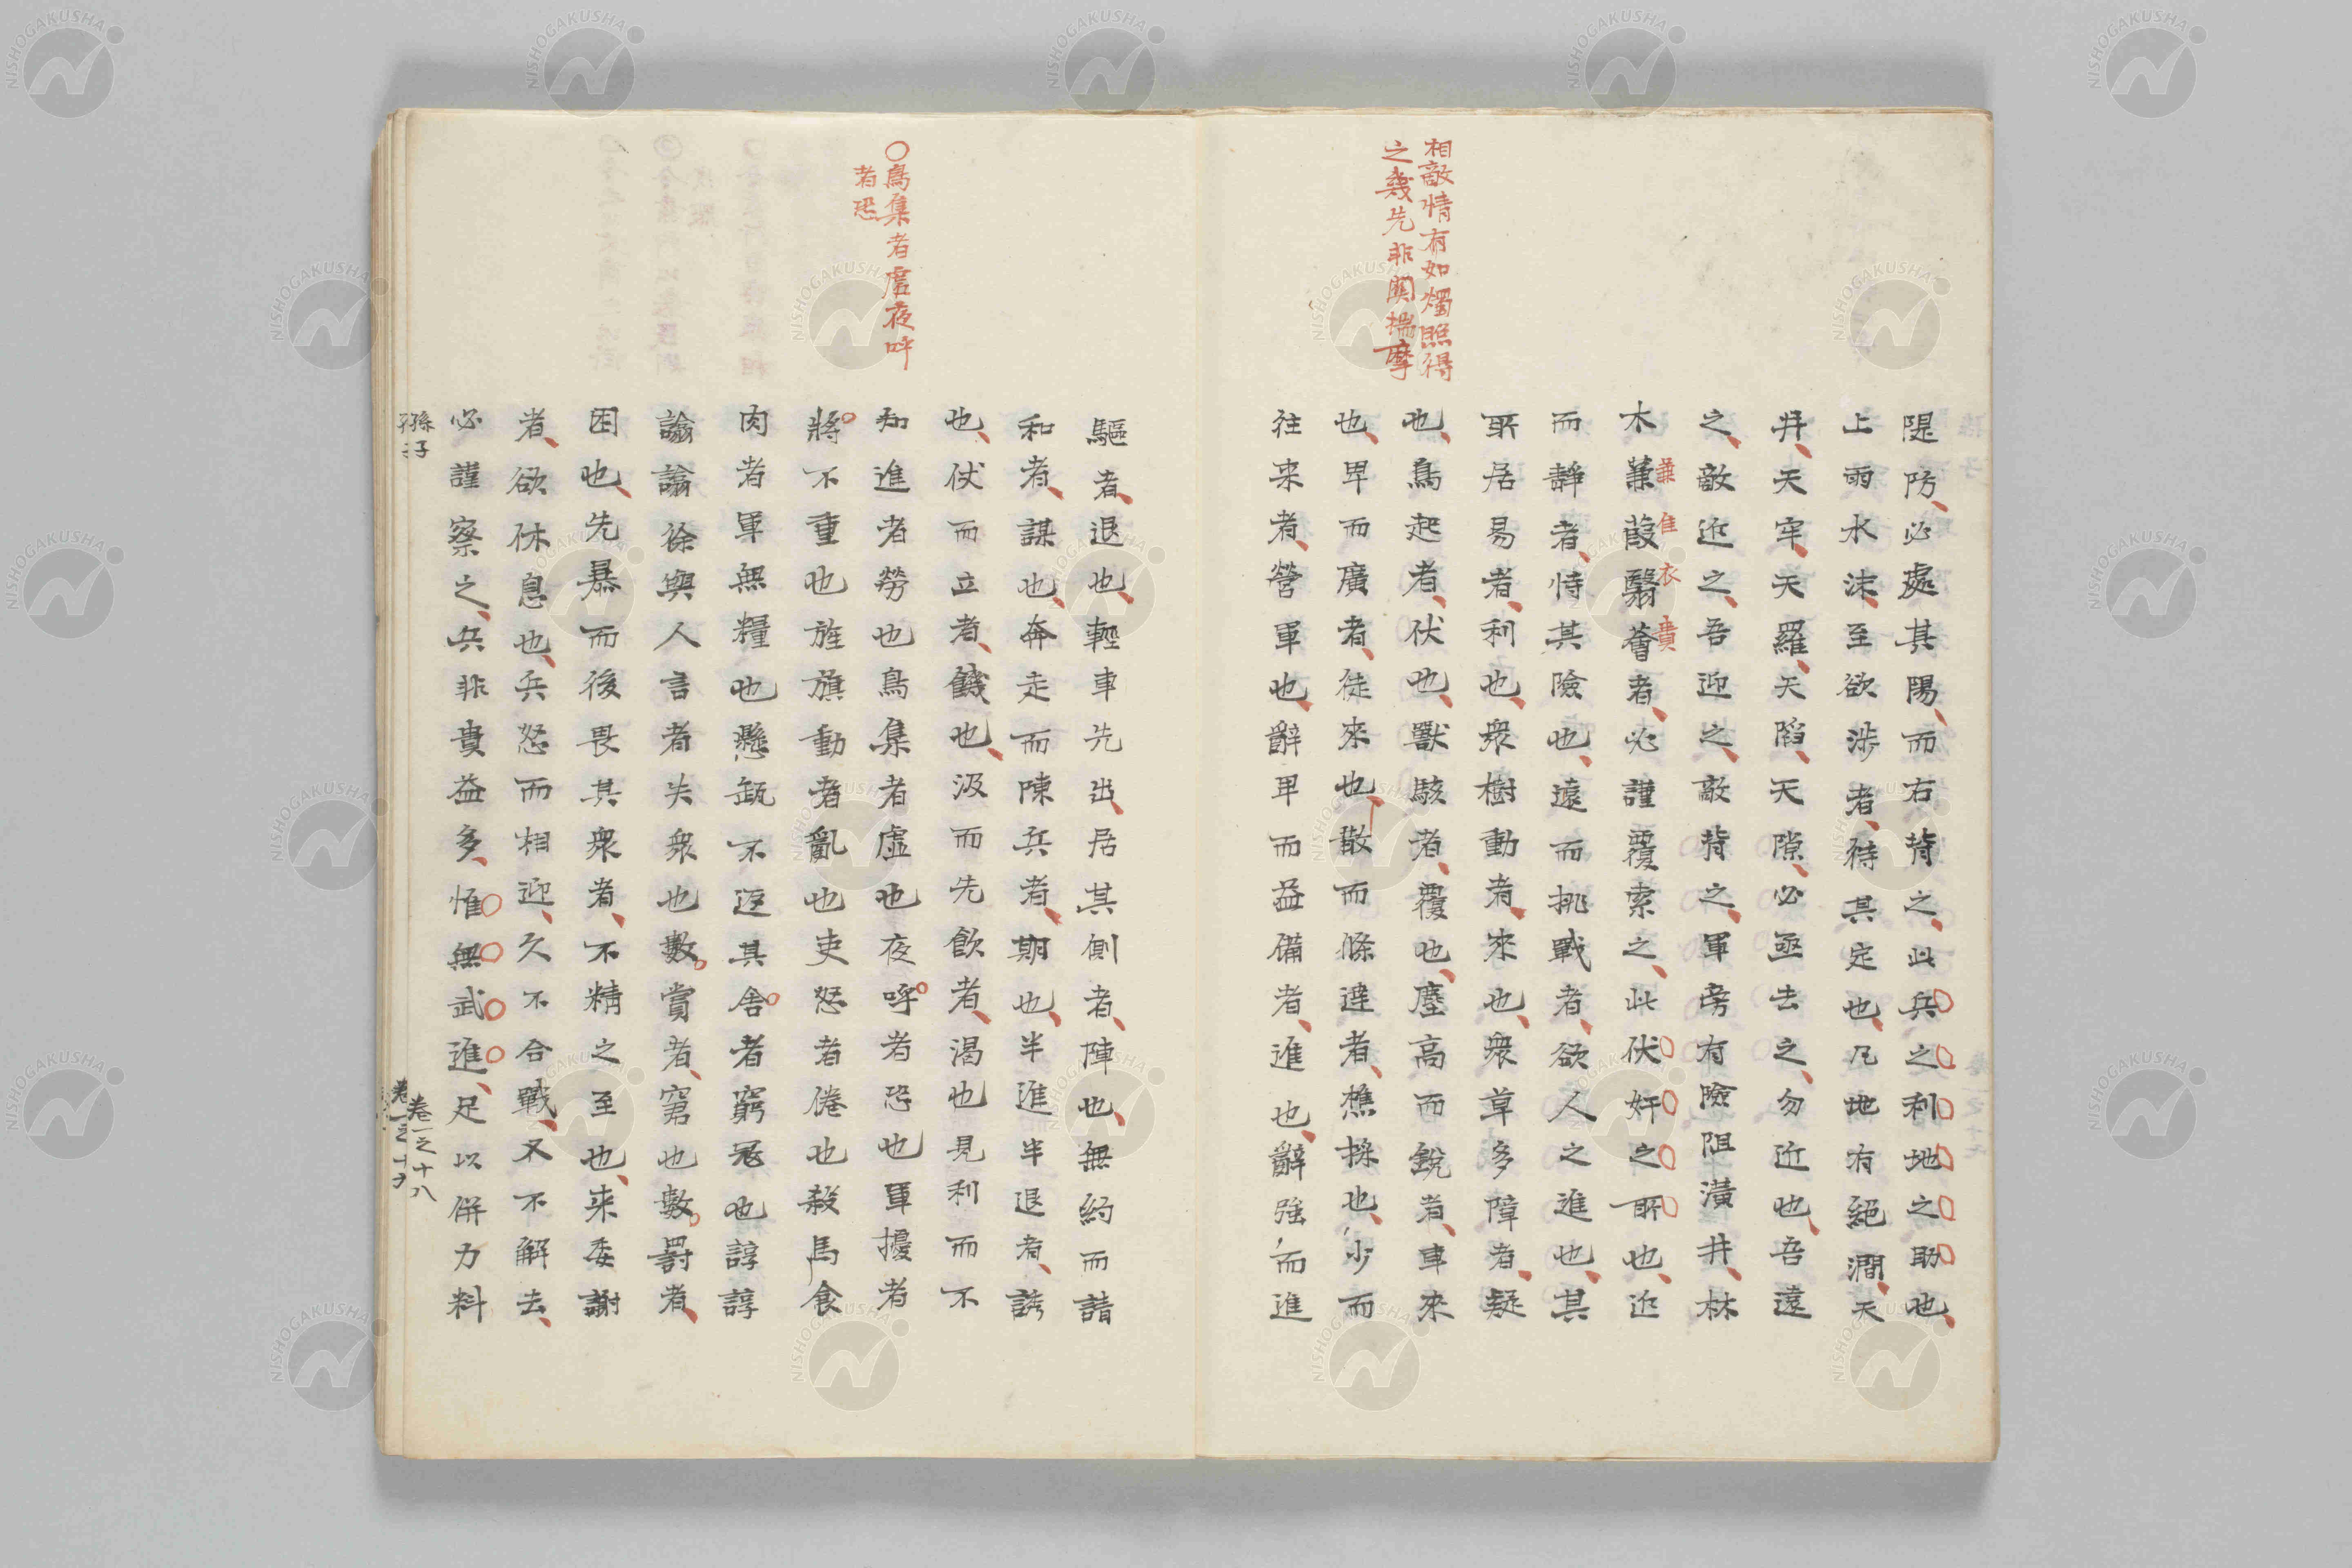 相敵情有如燭照得
之幾先非関揣摩
隄防必處其陽而右背之此兵之利地之助也
上雨水沫至欲渉者待其定也凡地有絕澗天
井天牢天羅天陷天隙必亟去之勿近也吾遠
之敵近之吾迎之敵背之軍旁有險阻潢井林
木蒹葭翳薈者必謹覆索之此伏奸之所也近
蒹 佳 衣 貴
而靜者恃其險也遠而挑戰者欲人之進也其
所居易者利也衆樹動者來也衆草多障者疑
也鳥起者伏也獸駭者覆也塵高而銳者車來
也卑而廣者徒來也散而條達者樵採也少而
往来者營軍也辭卑而益備者進也辭強而進
驅者退也輕車先出居其側者陣也無約而請
和者謀也奔走而陳兵者期也半進半退者誘
也仗而立者饑也汲而先飲者渴也見利而不
知進者勞也鳥集者虛也夜呼者恐也軍擾者
○鳥集者虛夜呼
者恐
將不重也旌旗動者亂也吏怒者倦也殺馬食
肉者軍無糧也懸缻不返其舍者窮寇也諄諄
諭諭徐與人言者失衆也數賞者窘也數罰者
困也先暴而後畏其衆者不精之至也来委謝
者欲休息也兵怒而相迎久不合戰又不解去
必謹察之兵非貴益多惟無武進足以併力料
孫子
卷一之十八